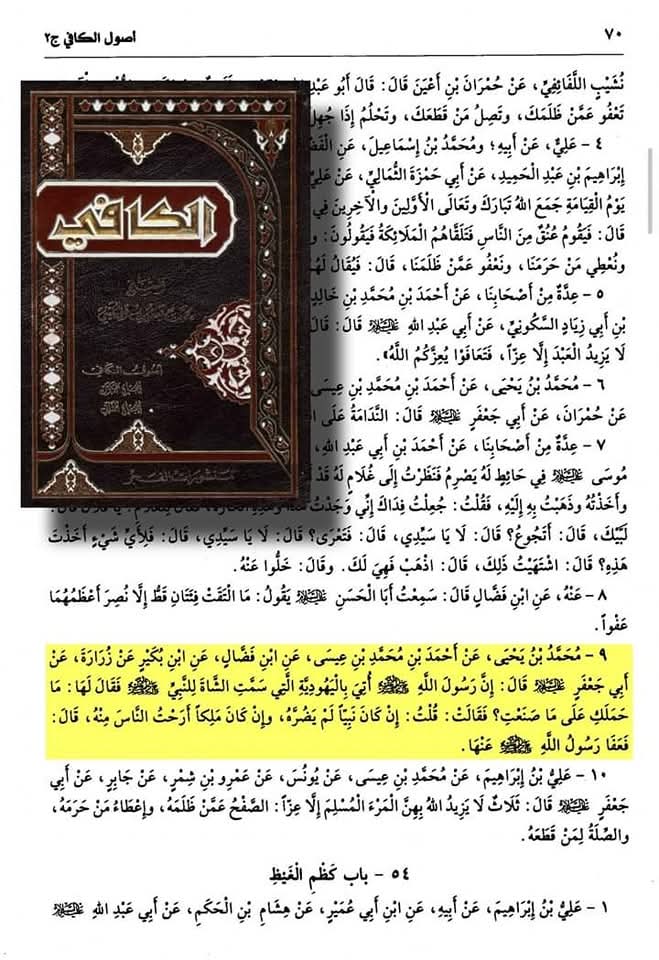 ٧٠
أصول الكافي ج٢
نُشَيْبٍ اللَّفَائِفِيِّ، عَنْ حُمْرَانَ بْنِ أَعْيَنَ قَالَ: قَالَ أَبُو عَبْدِ
تَعْفُو عَمَّنْ ظَلَمَكَ، وَتَصِلُ مَنْ قَطَعَكَ، وَتَحْلُمُ إِذَا جُهِلَ
٤ - عَلِيٌّ، عَنْ أَبِيهِ؛ ومُحَمَّدُ بْنُ إِسْمَاعِيلَ، عَنِ الْفَضْ
إِبْرَاهِيمَ بْنِ عَبْدِ الْحَمِيدِ، عَنْ أَبِي حَمْزَةَ الثُّمَالِيِّ، عَنْ عَلِيِّ
يَوْمُ الْقِيَامَةِ جَمَعَ اللهُ تَبَارَكَ وَتَعَالَى الْأَوَّلِينَ وَالْآخِرِينَ فِي
قَالَ: فَيَقُومُ عُنُقٌ مِنَ النَّاسِ فَتَلَقَّاهُمُ الْمَلَائِكَةُ فَيَقُولُونَ:
ونُعْطِي مَنْ حَرَمَنَا، ونَعْفُو عَمَّنْ ظَلَمَنَا، قَالَ: فَيُقَالُ لَهُمْ
٥ - عِدَّةٌ مِنْ أَصْحَابِنَا، عَنْ أَحْمَدَ بْنِ مُحَمَّدِ بْنِ خَالِدٍ
بْنِ أَبِي زِيَادٍ السَّكُونِيِّ، عَنْ أَبِي عَبْدِ اللهِ عليه السلام قَالَ: قَالَ
لَا يَزِيدُ الْعَبْدَ إِلَّا عِزّاً، فَتَعَافَوْا يُعِزَّكُمُ اللهُ».
٦ - مُحَمَّدُ بْنُ يَحْيَى، عَنْ أَحْمَدَ بْنِ مُحَمَّدِ بْنِ عِيسَى
عَنْ حُمْرَانَ، عَنْ أَبِي جَعْفَرٍ عليه السلام قَالَ: النَّدَامَةُ عَلَى
٧ - عِدَّةٌ مِنْ أَصْحَابِنَا، عَنْ أَحْمَدَ بْنِ أَبِي عَبْدِ اللهِ،
مُوسَى عليه السلام فِي حَائِطٍ لَهُ يَصْرِمُ فَنَظَرْتُ إِلَى غُلَامٍ لَهُ قَدْ
وأَخَذْتُهُ وذَهَبْتُ بِهِ إِلَيْهِ، فَقُلْتُ: جُعِلْتُ فِدَاكَ إِنِّي وَجَدْتُ
لَبَّيْكَ، قَالَ: أَتَجُوعُ؟ قَالَ: لَا يَا سَيِّدِي، قَالَ: فَتَعْرَى؟ قَالَ: لَا يَا سَيِّدِي، قَالَ: فَلِأَيِّ شَيْءٍ أَخَذْتَ
هَذِهِ؟ قَالَ: اشْتَهَيْتُ ذَلِكَ، قَالَ: اذْهَبْ فَهِيَ لَكَ. وقَالَ: خَلُّوا عَنْهُ.
٨ - عَنْهُ، عَنِ ابْنِ فَضَّالٍ قَالَ: سَمِعْتُ أَبَا الْحَسَنِ عليه السلام يَقُولُ: مَا الْتَقَتْ فِئَتَانِ قَطُّ إِلَّا نُصِرَ أَعْظَمُهُمَا
عَفْواً.
٩ - مُحَمَّدُ بْنُ يَحْيَى، عَنْ أَحْمَدَ بْنِ مُحَمَّدِ بْنِ عِيسَى، عَنِ ابْنِ فَضَّالٍ، عَنِ ابْنِ بُكَيْرٍ عَنْ زُرَارَةَ، عَنْ
أَبِي جَعْفَرٍ عليه السلام قَالَ: إِنَّ رَسُولَ اللهِ ﷺ أُتِيَ بِالْيَهُودِيَّةِ الَّتِي سَمَّتِ الشَّاةَ لِلنَّبِيِّ ﷺ فَقَالَ لَهَا: مَا
حَمَلَكِ عَلَى مَا صَنَعْتِ؟ فَقَالَتْ: قُلْتُ: إِنْ كَانَ نَبِيّاً لَمْ يَضُرَّهُ، وإِنْ كَانَ مَلِكاً أَرَحْتُ النَّاسَ مِنْهُ، قَالَ:
فَعَفَا رَسُولُ اللهِ ﷺ عَنْهَا.
١٠ - عَلِيُّ بْنُ إِبْرَاهِيمَ، عَنْ مُحَمَّدِ بْنِ عِيسَى، عَنْ يُونُسَ، عَنْ عَمْرِو بْنِ شِمْرٍ، عَنْ جَابِرٍ، عَنْ أَبِي
جَعْفَرٍ عليه السلام قَالَ: ثَلَاثٌ لَا يَزِيدُ اللهُ بِهِنَّ الْمَرْءَ الْمُسْلِمَ إِلَّا عِزّاً: الصَّفْحُ عَمَّنْ ظَلَمَهُ، وإِعْطَاءُ مَنْ حَرَمَهُ،
والصِّلَةُ لِمَنْ قَطَعَهُ.
٥٤ - باب كَظْمِ الْغَيْظِ
١ - عَلِيُّ بْنُ إِبْرَاهِيمَ، عَنْ أَبِيهِ، عَنِ ابْنِ أَبِي عُمَيْرٍ، عَنْ هِشَامِ بْنِ الْحَكَمِ، عَنْ أَبِي عَبْدِ اللهِ عليه السلام
الكافي
أصول الكافي
منشورات الفجر